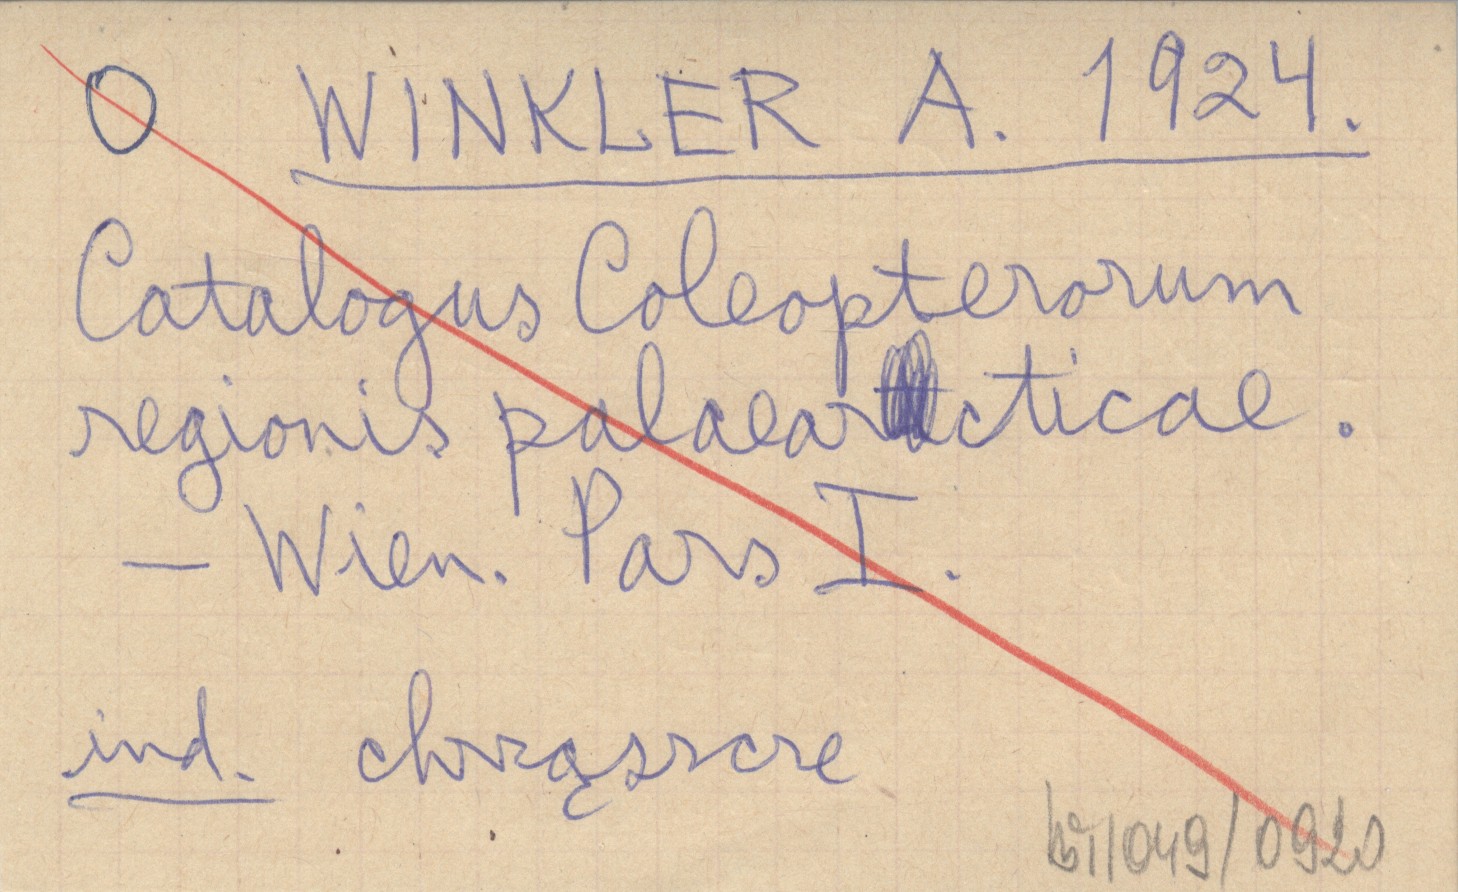 O WINKLER A. 1924.
Catalogus Coleopterorum
regionis palaearcticae.
— Wien. Pars I.
ind. chrząszcze
/049/0920